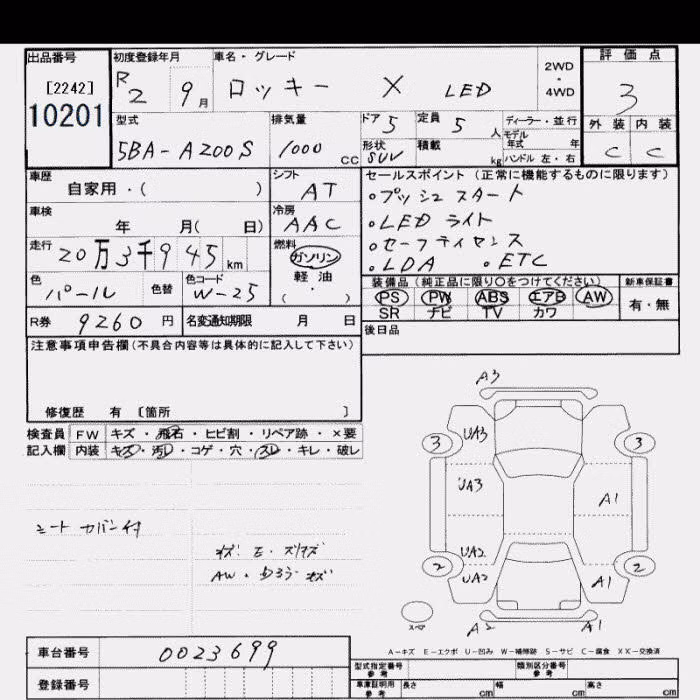 出品番号
[2242]
10201
初度登録年月
R2 9月
車名・グレード
ロッキー X LED
2WD
・
4WD
評価点
3
外装 内装
C C
型式
5BA-A200S
排気量
1000 CC
ドア 5
定員 5 人
形状 SUV
積載 kg
ディーラー・並行
モデル年式 年
ハンドル 左・右
車歴
自家用・( )
シフト
AT
車検
年 月( 日)
冷房
AAC
走行
20万3千945 km
燃料
ガソリン
軽・油
( ・ )
色
パール
色替
色コード
W-25
R券 9260 円
名変通知期限 月 日
セールスポイント(正常に機能するものに限ります)
。プッシュスタート
。LEDライト
。セーフティセンス
。LDA 。ETC
装備品(純正品に限り○をつけてください)
PS PW ABS エアB AW
SR ナビ TV カワ
新車保証書
有・無
後日品
注意事項申告欄(不具合内容等は具体的に記入して下さい)
修復歴 有 〔箇所 〕
検査員記入欄
FW キズ・飛石・ヒビ割・リペア跡・×要
内装 キズ・汚レ・コゲ・穴・スレ・キレ・破レ
シートカバー付
AW・
A3
UA3
3
3
UA3
A1
UA2
2
2
UA2
A1
スペア
A2
A1
A-キズ E-エクボ U-凹み W-補修跡 S-サビ C-腐食 XX-交換済
車台番号 0023699
登録番号
型式指定番号
参考
類別区分番号
参考
車庫証明用
参考
長さ cm
幅 cm
高さ cm